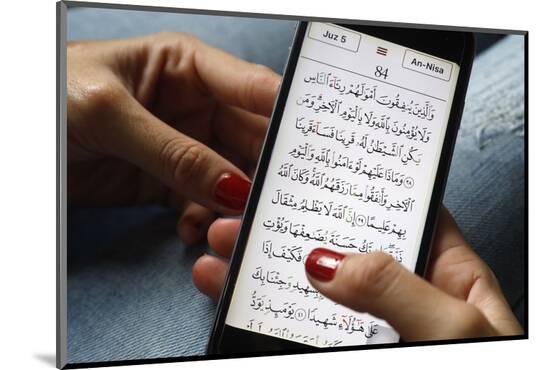 Juz 5
An-Nisa
84
وَٱلَّذِينَ يُنفِقُونَ أَمْوَٰلَهُمْ رِئَآءَ ٱلنَّاسِ
وَلَا يُؤْمِنُونَ بِٱللَّهِ وَلَا بِٱلْيَوْمِ ٱلْآخِرِ وَمَن
يَكُنِ ٱلشَّيْطَٰنُ لَهُۥ قَرِينًا فَسَآءَ قَرِينًا
٣٨ وَمَاذَا عَلَيْهِمْ لَوْ ءَامَنُوا۟ بِٱللَّهِ وَٱلْيَوْمِ
ٱلْآخِرِ وَأَنفَقُوا۟ مِمَّا رَزَقَهُمُ ٱللَّهُ وَكَانَ ٱللَّهُ
بِهِمْ عَلِيمًا ٣٩ إِنَّ ٱللَّهَ لَا يَظْلِمُ مِثْقَالَ
تَكُ حَسَنَةً يُضَٰعِفْهَا وَيُؤْتِ
فَكَيْفَ إِذَا
بِشَهِيدٍ وَجِئْنَا بِكَ
عَلَىٰ هَٰٓؤُلَآءِ شَهِيدًا ٤١ يَوْمَئِذٍ يَوَدُّ